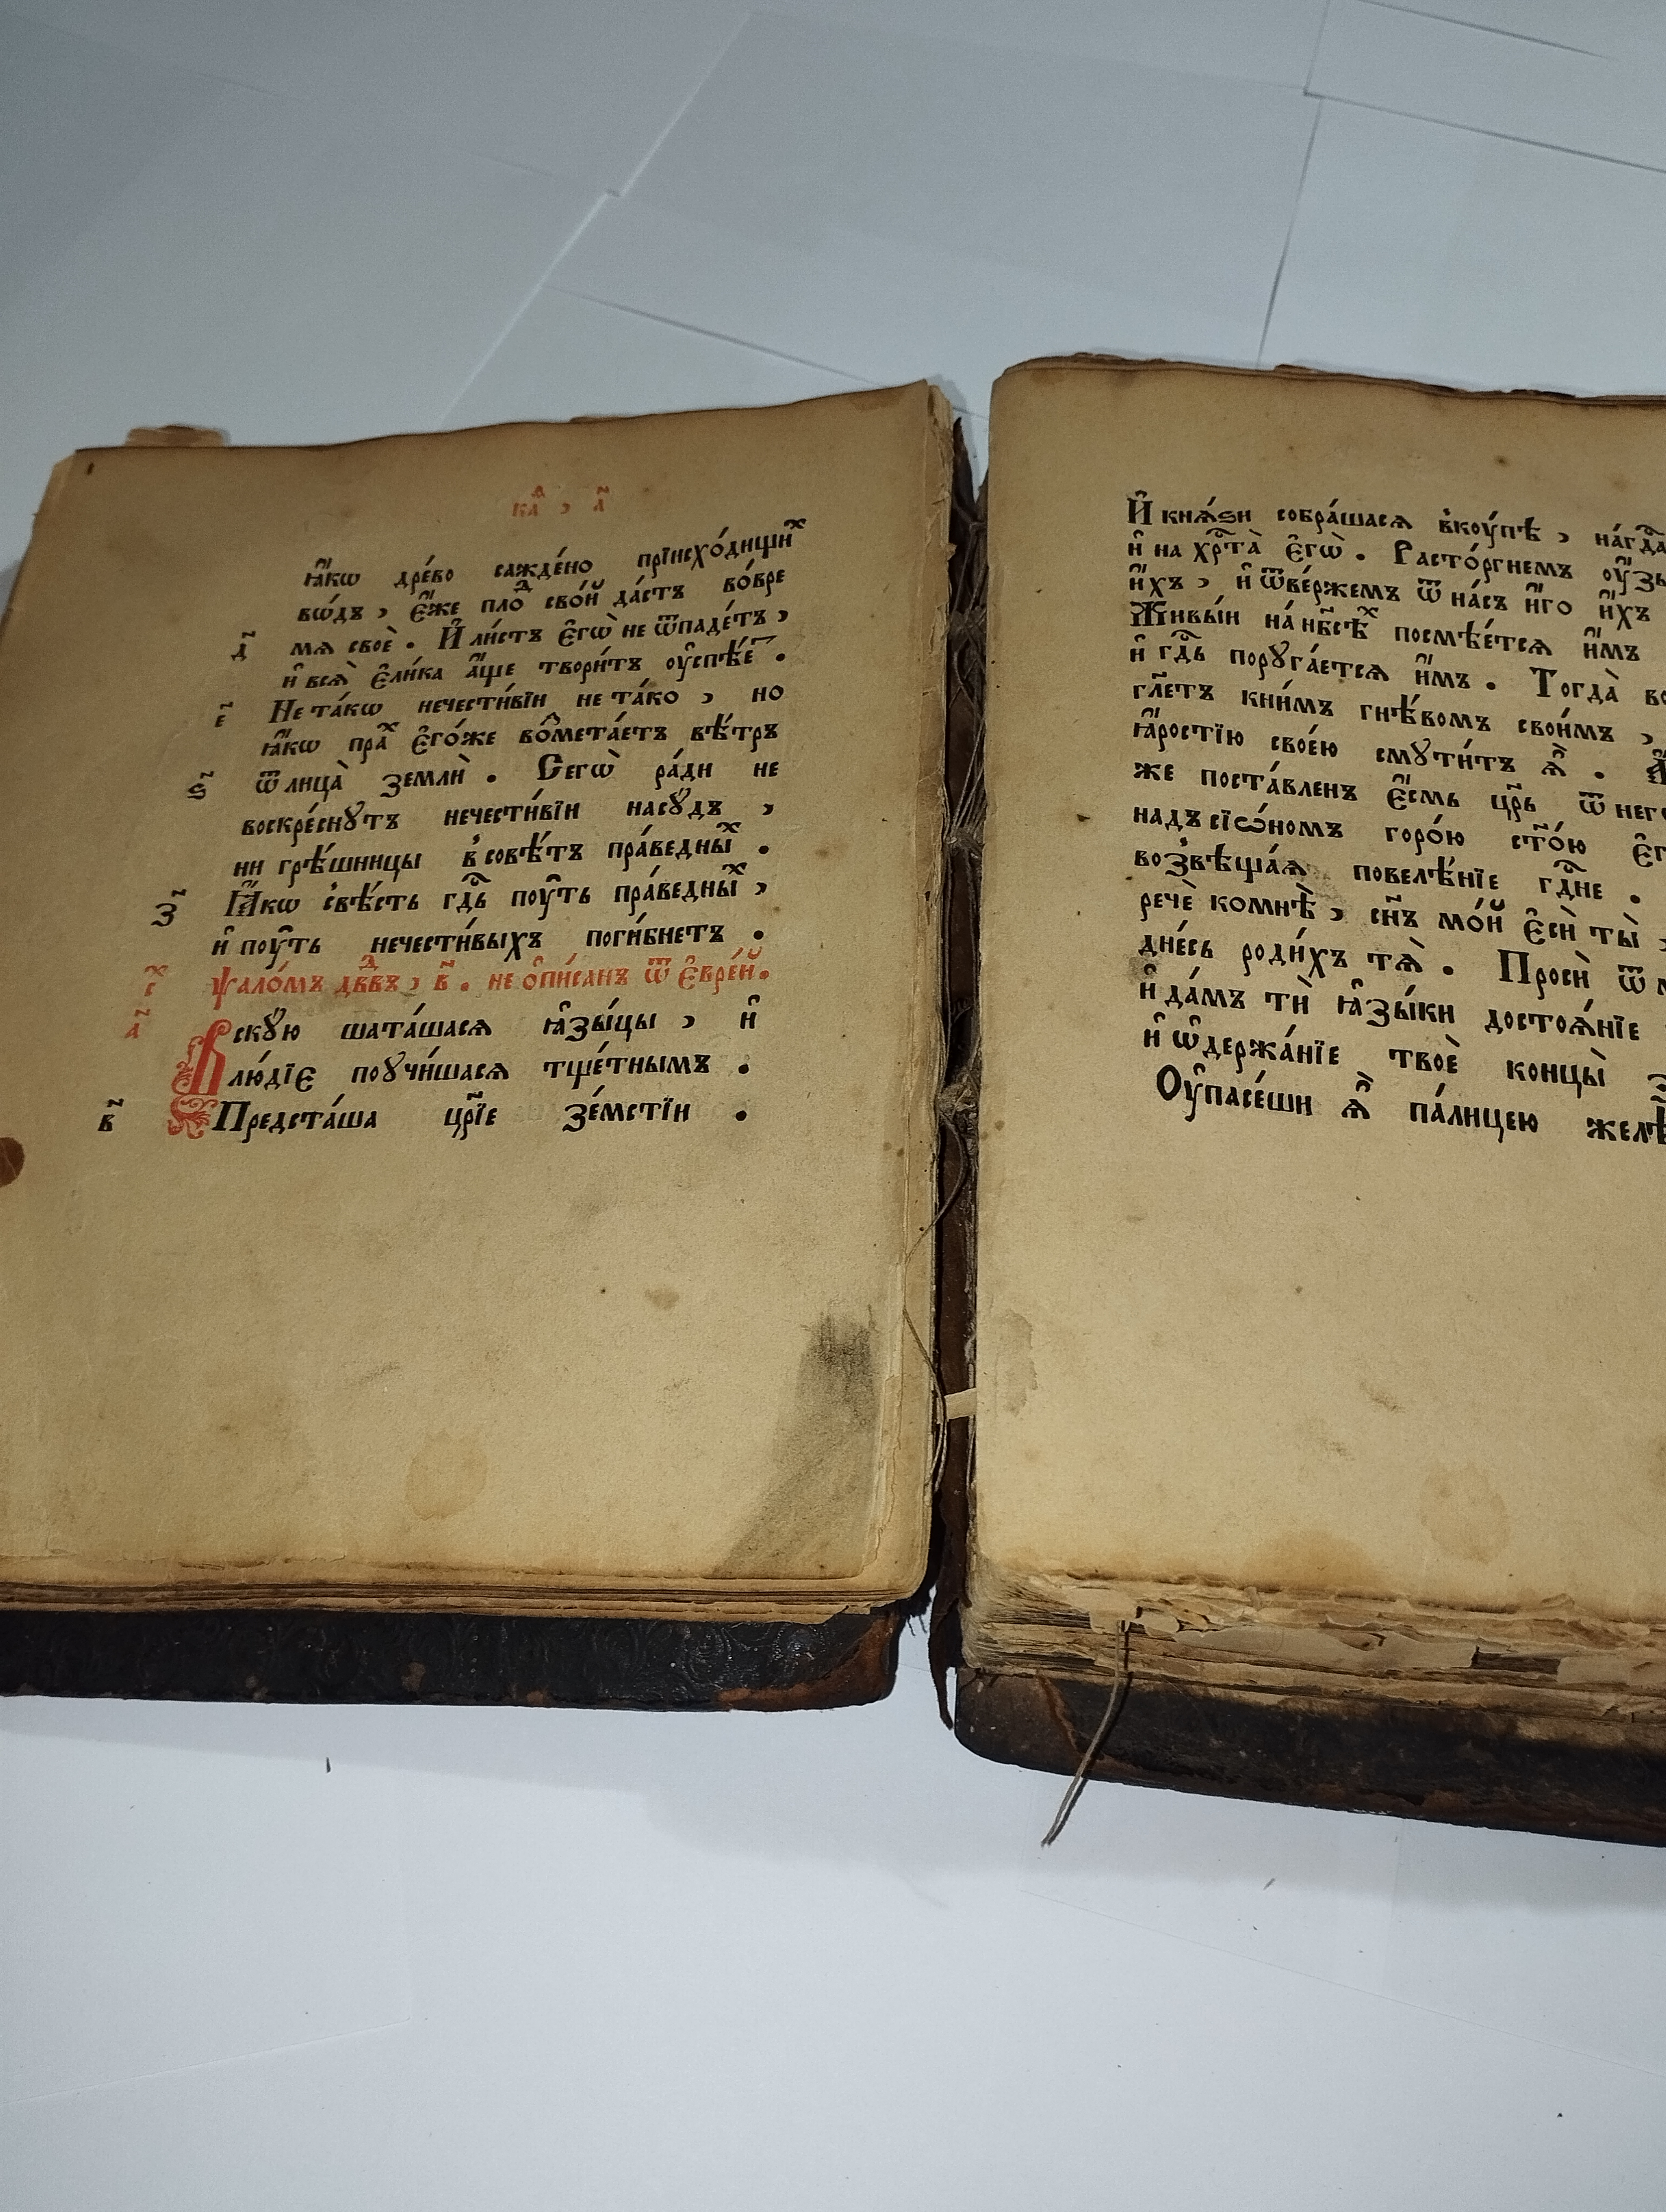 ка҃ , а҃
ꙗ҆́кѡ дре́во сажде́но прїисхо́дищиⷯ
во́дъ , є҆́же плоⷣ сво́й да́стъ во́вре
д҃ мѧ своѐ . И҆ ли́стъ є҆гѡ̀ не ѿпаде́тъ ,
и҆ всѧ̀ є҆ли́ка а҆́ще твори́тъ оу҆спѣ́еⷮ .
є҃ Не та́кѡ нечести́вїи не та́ко , но
ꙗ҆́кѡ праⷯ є҆го́же во́мета́етъ вѣ́тръ
ѕ҃ ѿ лица̀ землѝ . Сегѡ̀ ра́ди не
воскре́снꙋтъ нечести́вїи насꙋ́дъ ,
ни грѣ́шницы в совѣ́тъ пра́ведныⷯ .
з҃ Ꙗ҆́кѡ свѣ́сть гдⷭ҇ь поу́ть пра́ведныⷯ ,
и҆ поу́ть нечести́выхъ поги́бнетъ .
Ѱало́мъ дв҃двъ , в҃ . не ѻ҆пи́санъ ѿ є҆вре́й .
а҃ Вскꙋ́ю шата́шасѧ ꙗ҆зы́цы , и҆
лю́дїє поꙋчи́шасѧ тще́тнымъ .
в҃ Предста́ша цр҃їе зе́мстїи .
И҆ кнѧ́ѕи собра́шасѧ вкоу́пѣ , на́гдⷭ҇а
и҆ на хрⷭ҇та̀ є҆гѡ̀ . Расто́ргнемъ оу҆́зы
и҆́хъ , и҆ ѿве́ржемъ ѿ на́съ и҆́го и҆́хъ
Живы́и на́ нб҃сѣⷯ посмѣе́тсѧ и҆́мъ
и҆ гдⷭ҇ь порꙋга́етсѧ и҆́мъ . Тогда̀
гл҃етъ кни́мъ гнѣ́вомъ свои́мъ ,
ꙗ҆́ростїю свое́ю смꙋти́тъ ѧ҆̀ .
же поста́вленъ є҆́смь цр҃ь ѿ него
надъ сїѡ́номъ горо́ю ст҃о́ю
возвѣща́ѧ повелѣ́нїе гдⷭ҇не .
речѐ комнѣ̀ , сн҃ъ мо́й є҆сѝ ты̀ ,
дне́сь роди́хъ тѧ̀ . Просѝ ѿ
и҆ да́мъ тѝ ꙗ҆зы́ки достоѧ́нїе
и҆ ѡ҆держа́нїе твоѐ концы̀
Оу҆пасе́ши ѧ҆̀ па́лицею